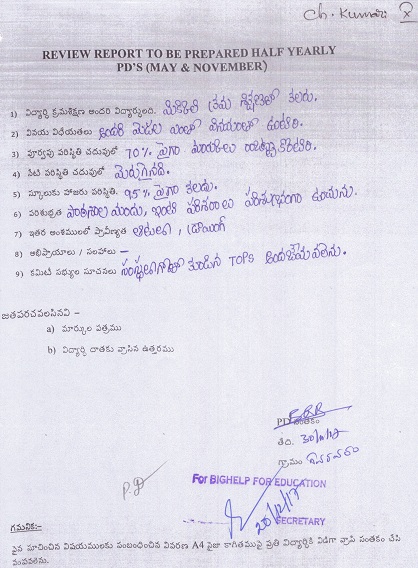 Ch. Kumari X
REVIEW REPORT TO BE PREPARED HALF YEARLY
PD'S (MAY & NOVEMBER)
1) విద్యార్థి క్రమశిక్షణ అందరి విద్యార్థులది. మిక్కిలి క్రమ శిక్షణలో కలదు.
2) వినయ విధేయతలు అందరి వినయంతో ఉంటారు.
3) పూర్వపు పరిస్థితి చదువులో 70% పైగా
4) నేటి పరిస్థితి చదువులో మెరుగైనది.
5) స్కూలుకు హాజరు పరిస్థితి. 95% పైగా కలదు.
6) పరిశుభ్రత పాఠశాల యందు, ఇంటి పరిసరాలు పరిశుభ్రంగా ఉండును.
7) ఇతర అంశములలో ప్రావీణ్యత ఆటలు, డ్రాయింగ్
8) అభిప్రాయాలు / సలహాలు –
9) కమిటీ సభ్యుల సూచనలు TOPS అందజేయవలెను.
జతపరచవలసినవి –
a) మార్కుల పత్రము
b) విద్యార్థి దాతకు వ్రాసిన ఉత్తరము
PD సంతకం
తేది. 30/11/17
గ్రామం
P.D
For BIGHELP FOR EDUCATION
20/12/17
SECRETARY
గమనిక:-
పైన సూచించిన విషయములకు సంబంధించిన వివరణ A4 సైజు కాగితముపై ప్రతి విద్యార్థికి విడిగా వ్రాసి సంతకం చేసి
పంపవలెను.